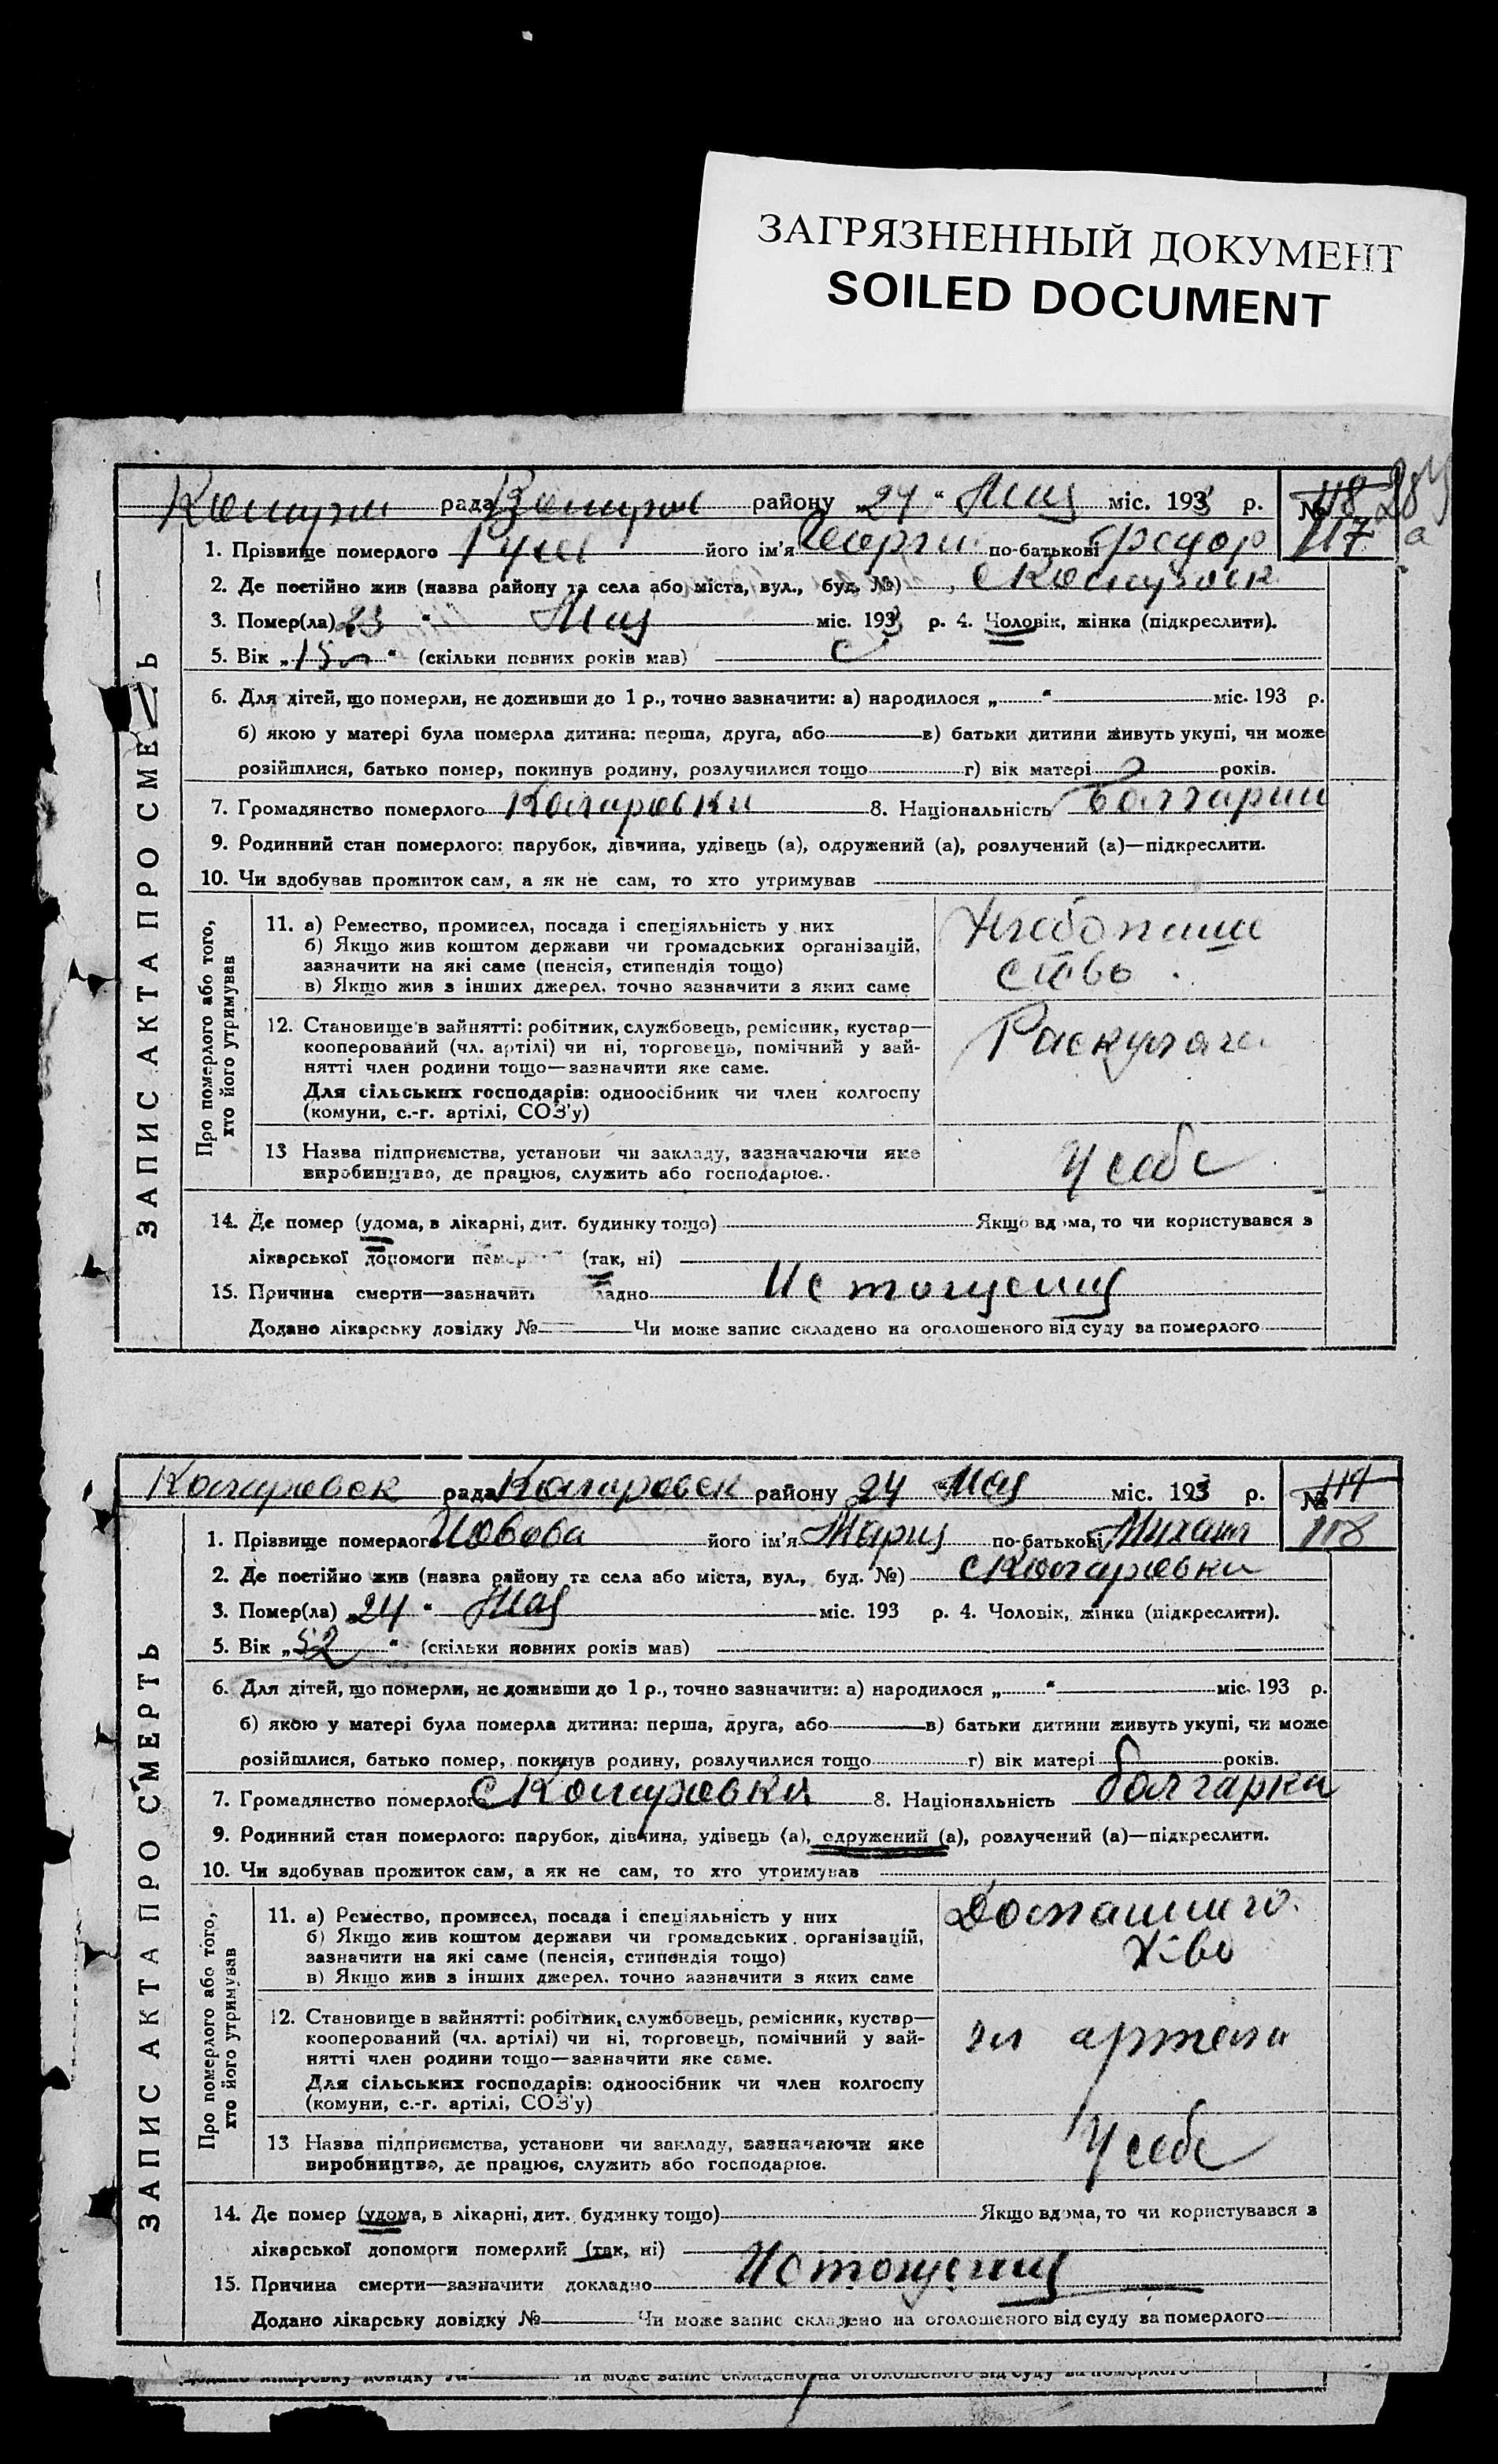 ЗАГРЯЗНЕННЫЙ ДОКУМЕНТ
SOILED DOCUMENT
рада району „24“ Мая міс. 1933 р. № 118
117
1. Прізвище померлого його ім'я Георги по-батькові Федор
2. Де постійно жив (назва району та села або міста, вул., буд. №)
3. Помер(ла) „23“ Мая міс. 1933 р. 4. Чоловік, жінка (підкреслити).
5. Вік „15 л“ (скільки повних років мав)
6. Для дітей, що померли, не доживши до 1 р., точно зазначити: а) народилося „ “ міс. 193 р.
б) якою у матері була померла дитина: перша, друга, або в) батьки дитини живуть укупі, чи може
розійшлися, батько помер, покинув родину, розлучилися тощо г) вік матері років.
7. Громадянство померлого 8. Національність Болгарин
9. Родинний стан померлого: парубок, дівчина, удівець (а), одружений (а), розлучений (а)—підкреслити.
10. Чи здобував прожиток сам, а як не сам, то хто утримував
ЗАПИС АКТА ПРО СМЕ Ь
Про померлого або того,
хто його утримував
11. а) Ремество, промисел, посада і спеціяльність у них
б) Якщо жив коштом держави чи громадських організацій,
зазначити на які саме (пенсія, стипендія тощо)
в) Якщо жив з інших джерел, точно зазначити з яких саме
Хлебопаше
ство
12. Становище в зайнятті: робітник, службовець, ремісник, кустар—
кооперований (чл. артілі) чи ні, торговець, помічний у зай-
нятті член родини тощо—зазначити яке саме.
Для сільських господарів: одноосібник чи член колгоспу
(комуни, с.-г. артілі, СОЗ'у)
13 Назва підприємства, установи чи закладу, зазначаючи яке
виробництво, де працює, служить або господарює.
У себе
14. Де помер (удома, в лікарні, дит. будинку тощо) Якщо вдома, то чи користувався з
лікарської допомоги (так, ні)
15. Причина смерти—зазначити докладно Истощения
Додано лікарську довідку № Чи може запис складено на оголошеного від суду за померлого
рада району 24 „Мая міс. 1933 р. №
118
1. Прізвище померлого Иовова його ім'я Мария по-батькові Михаил
2. Де постійно жив (назва району та села або міста, вул., буд. №)
3. Помер(ла) „24“ Мая міс. 193 р. 4. Чоловік, жінка (підкреслити).
5. Вік „52“ (скільки повних років мав)
6. Для дітей, що померли, не доживши до 1 р., точно зазначити: а) народилося „ “ міс. 193 р.
б) якою у матері була померла дитина: перша, друга, або в) батьки дитини живуть укупі, чи може
розійшлися, батько помер, покинув родину, розлучилися тощо г) вік матері років.
7. Громадянство померлого 8. Національність болгарка
9. Родинний стан померлого: парубок, дівчина, удівець (а), одружений (а), розлучений (а)—підкреслити.
10. Чи здобував прожиток сам, а як не сам, то хто утримував
ЗАПИС АКТА ПРО СМЕРТЬ
Про померлого або того,
хто його утримував
11. а) Ремество, промисел, посада і спеціяльність у них
б) Якщо жив коштом держави чи громадських організацій,
зазначити на які саме (пенсія, стипендія тощо)
в) Якщо жив з інших джерел, точно зазначити з яких саме
х-во
12. Становище в зайнятті: робітник, службовець, ремісник, кустар—
кооперований (чл. артілі) чи ні, торговець, помічний у зай-
нятті член родини тощо—зазначити яке саме.
Для сільських господарів: одноосібник чи член колгоспу
(комуни, с.-г. артілі, СОЗ'у)
чл артели
13 Назва підприємства, установи чи закладу, зазначаючи яке
виробництво, де працює, служить або господарює.
У себе
14. Де помер (удома, в лікарні, дит. будинку тощо) Якщо вдома, то чи користувався з
лікарської допомоги померлий (так, ні)
15. Причина смерти—зазначити докладно Истощения
Додано лікарську довідку № Чи може запис складено на оголошеного від суду за померлого